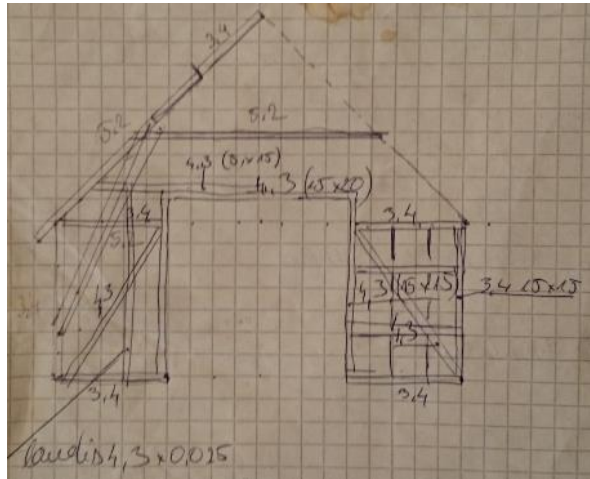 3,4
5,2
5,2
4,3 (5x15)
4,3 (15x20)
3.4
3.4
5,
4,3
4,3 (15x15)
3,4 15x15
4,3
3,4
3.4
laudis 4,3 x 0,025